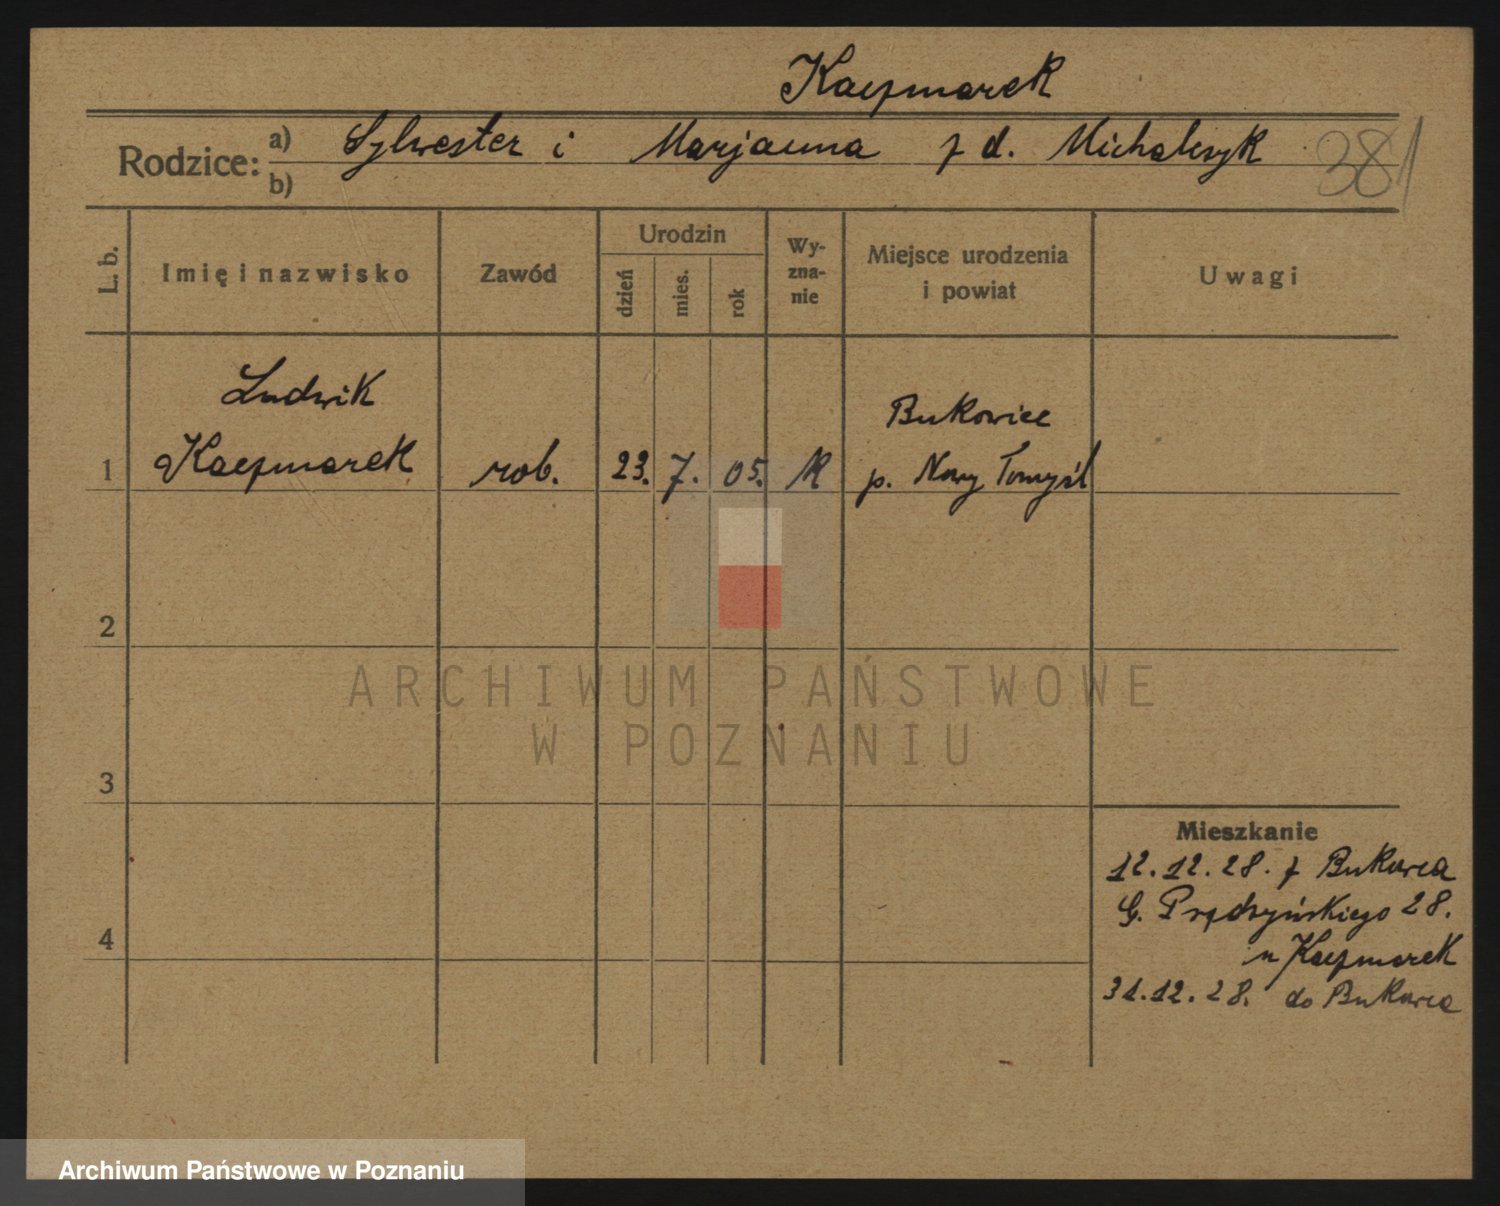 Kaczmarek
Rodzice: a) Sylwester i Marjanna z d. Michalczyk
b)
381
L. b.
Imię i nazwisko
Zawód
Urodzin
dzień
mies.
rok
Wy-
zna-
nie
Miejsce urodzenia
i powiat
Uwagi
Ludwik
Kaczmarek
1
rob.
23.
7.
05.
K
Bukowiec
p. Nowy Tomyśl
2
3
4
ARCHIWUM PAŃSTWOWE
W POZNANIU
Mieszkanie
12.12.28. z Bukowca
G. Prądzyńskiego 28.
u Kaczmarek
31.12.28. do Bukowca
Archiwum Państwowe w Poznaniu